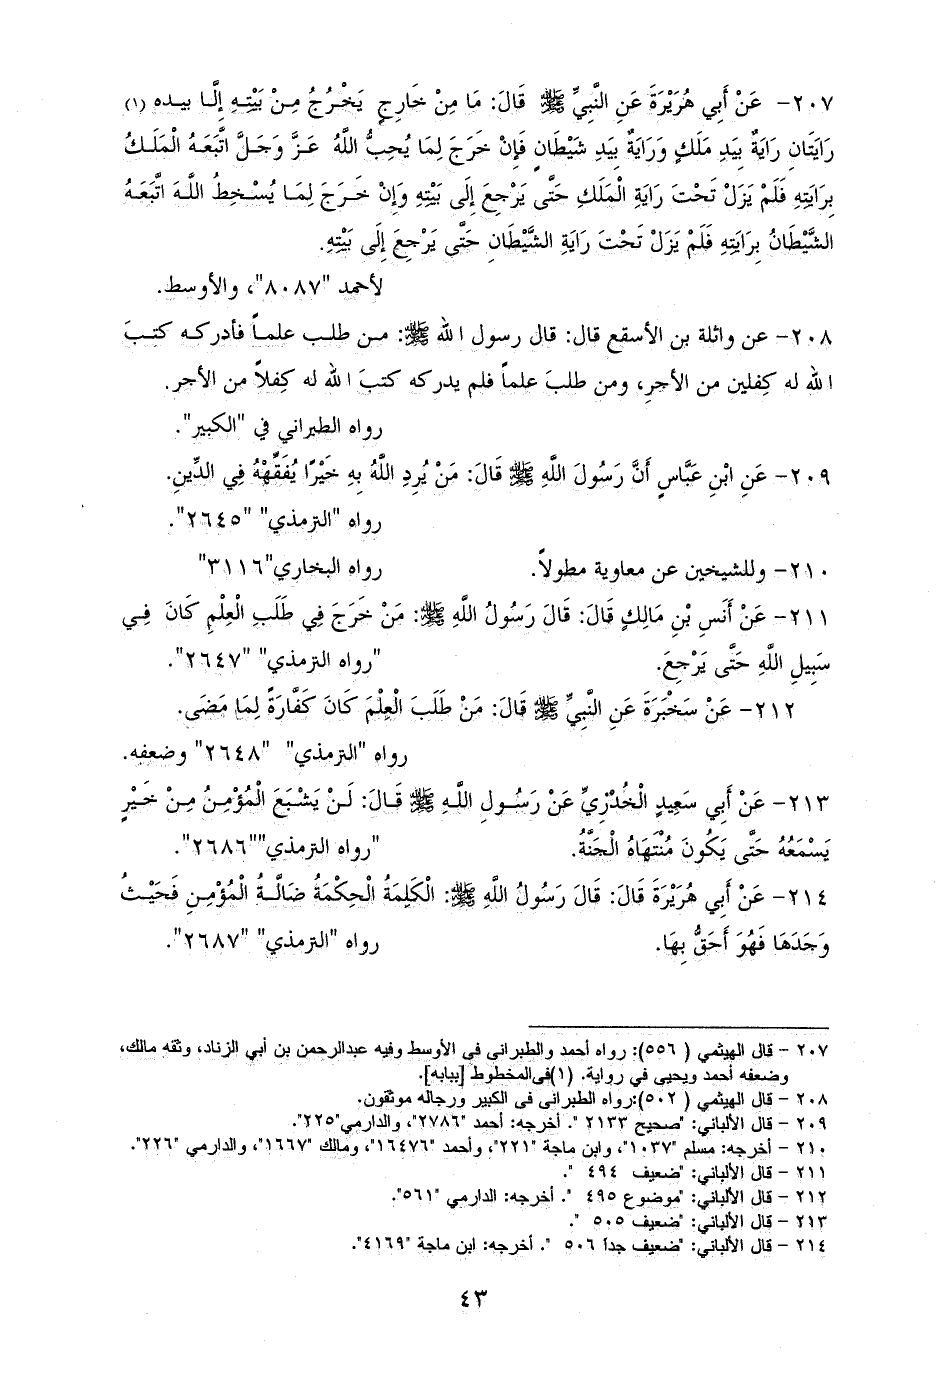 ٢٠٧- عَنْ أَبِي هُرَيْرَةَ عَنِ النَّبِيِّ ﷺ قَالَ: مَا مِنْ خَارِجٍ يَخْرُجُ مِنْ بَيْتِهِ إِلَّا بيده (١)
رَايَتَانِ رَايَةٌ بِيَدِ مَلَكٍ وَرَايَةٌ بِيَدِ شَيْطَانٍ فَإِنْ خَرَجَ لِمَا يُحِبُّ اللَّهُ عَزَّ وَجَلَّ اتَّبَعَهُ الْمَلَكُ
بِرَايَتِهِ فَلَمْ يَزَلْ تَحْتَ رَايَةِ الْمَلَكِ حَتَّى يَرْجِعَ إِلَى بَيْتِهِ وَإِنْ خَرَجَ لِمَا يُسْخِطُ اللَّهَ اتَّبَعَهُ
الشَّيْطَانُ بِرَايَتِهِ فَلَمْ يَزَلْ تَحْتَ رَايَةِ الشَّيْطَانِ حَتَّى يَرْجِعَ إِلَى بَيْتِهِ.
لأحمد "٨٠٨٧"، والأوسط.
٢٠٨- عن واثلة بن الأسقع قال: قال رسول الله ﷺ: من طلب علماً فأدركه كتبَ
الله له كِفلين من الأجرِ، ومن طلبَ علماً فلم يدركه كتبَ الله له كِفلاً من الأجر.
رواه الطبراني في "الكبير".
٢٠٩- عَنِ ابْنِ عَبَّاسٍ أَنَّ رَسُولَ اللَّهِ ﷺ قَالَ: مَنْ يُرِدِ اللَّهُ بِهِ خَيْرًا يُفَقِّهْهُ فِي الدِّينِ.
رواه "الترمذي" "٢٦٤٥".
٢١٠- وللشيخين عن معاوية مطولاً. رواه البخاري"٣١١٦"
٢١١- عَنْ أَنَسِ بْنِ مَالِكٍ قَالَ: قَالَ رَسُولُ اللَّهِ ﷺ: مَنْ خَرَجَ فِي طَلَبِ الْعِلْمِ كَانَ فِي
سَبِيلِ اللَّهِ حَتَّى يَرْجِعَ. "رواه الترمذي" "٢٦٤٧".
٢١٢- عَنْ سَخْبَرَةَ عَنِ النَّبِيِّ ﷺ قَالَ: مَنْ طَلَبَ الْعِلْمَ كَانَ كَفَّارَةً لِمَا مَضَى.
رواه "الترمذي" "٢٦٤٨" وضعفه.
٢١٣- عَنْ أَبِي سَعِيدٍ الْخُدْرِيِّ عَنْ رَسُولِ اللَّهِ ﷺ قَالَ: لَنْ يَشْبَعَ الْمُؤْمِنُ مِنْ خَيْرٍ
يَسْمَعُهُ حَتَّى يَكُونَ مُنْتَهَاهُ الْجَنَّةُ. "رواه الترمذي""٢٦٨٦".
٢١٤- عَنْ أَبِي هُرَيْرَةَ قَالَ: قَالَ رَسُولُ اللَّهِ ﷺ: الْكَلِمَةُ الْحِكْمَةُ ضَالَّةُ الْمُؤْمِنِ فَحَيْثُ
وَجَدَهَا فَهُوَ أَحَقُّ بِهَا. رواه "الترمذي" "٢٦٨٧".
٢٠٧ - قال الهيثمي ( ٥٥٦): رواه أحمد والطبرانى فى الأوسط وفيه عبدالرحمن بن أبي الزناد، وثقه مالك،
وضعفه أحمد ويحيى في رواية. (١)فى المخطوط [ببابه].
٢٠٨ - قال الهيثمي ( ٥٠٢):رواه الطبرانى فى الكبير ورجاله موثقون.
٢٠٩ - قال الألباني: "صحيح ٢١٣٣ ". أخرجه: أحمد "٢٧٨٦"، والدارمي"٢٢٥".
٢١٠ - أخرجه: مسلم "١٠٣٧"، وابن ماجة "٢٢١"، وأحمد "١٦٤٧٦"، ومالك "١٦٦٧"، والدارمي "٢٢٦".
٢١١ - قال الألباني: "ضعيف ٤٩٤ ".
٢١٢ - قال الألباني: "موضوع ٤٩٥ ". أخرجه: الدارمي "٥٦١".
٢١٣ - قال الألباني: "ضعيف ٥٠٥ ".
٢١٤ - قال الألباني: "ضعيف جداً ٥٠٦ ". أخرجه: ابن ماجة "٤١٦٩".
٤٣